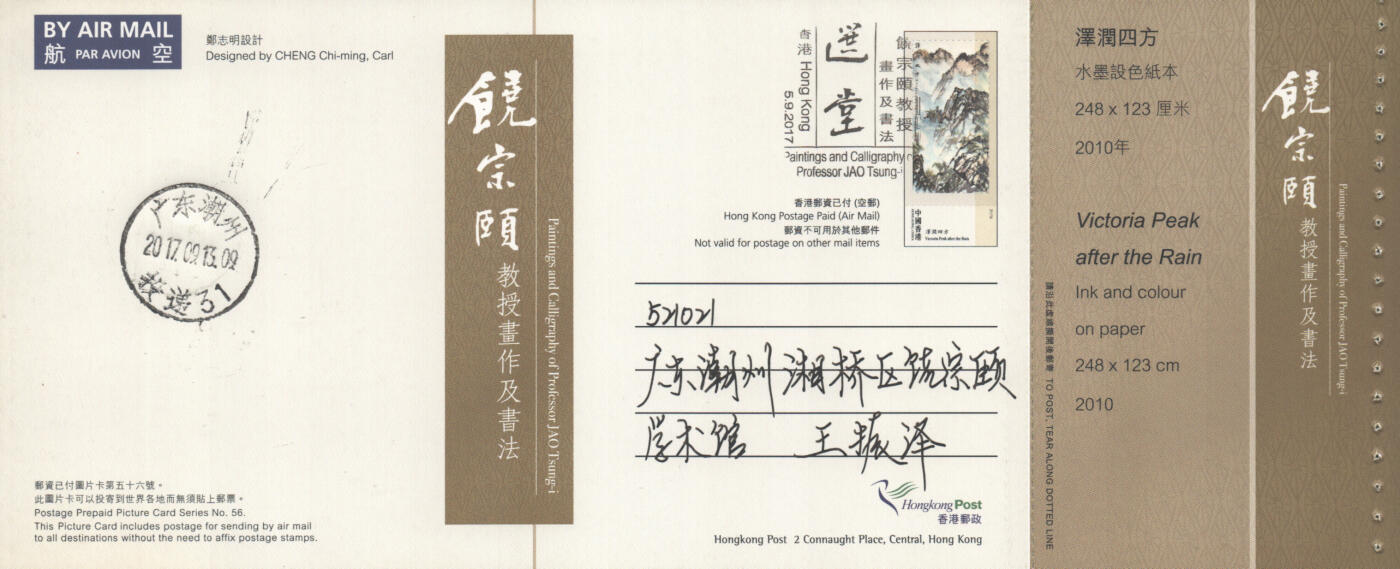 BY AIR MAIL
航 PAR AVION 空
鄭志明設計
Designed by CHENG Chi-ming, Carl
广东潮州
2017.09.13.09
投递31
郵資已付圖片卡第五十六號。
此圖片卡可以投寄到世界各地而無須貼上郵票。
Postage Prepaid Picture Card Series No. 56.
This Picture Card includes postage for sending by air mail
to all destinations without the need to affix postage stamps.
饒宗頤
教授畫作及書法
Paintings and Calligraphy of Professor JAO Tsung-i
香港 Hong Kong
5.9.2017
選堂
饒宗頤教授
畫作及書法
Paintings and Calligraphy
Professor JAO Tsung-i
中國香港
澤潤四方
Victoria Peak after the Rain
香港郵資已付 (空郵)
Hong Kong Postage Paid (Air Mail)
郵資不可用於其他郵件
Not valid for postage on other mail items
521021
广东潮州湘桥区饶宗颐
学术馆 王振泽
Hongkong Post
香港郵政
Hongkong Post 2 Connaught Place, Central, Hong Kong
請沿此虛線撕開後郵寄 TO POST, TEAR ALONG DOTTED LINE
澤潤四方
水墨設色紙本
248 x 123 厘米
2010年
Victoria Peak
after the Rain
Ink and colour
on paper
248 x 123 cm
2010
饒宗頤
教授畫作及書法
Paintings and Calligraphy of Professor JAO Tsung-i